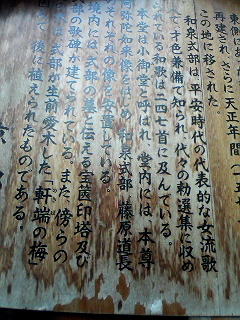 東側にあ
再建され、さらに天正年間
この地に移された。
和泉式部は、平安時代の代表的な女流歌
で、才色兼備で知られ、代々の勅選集に収め
られている和歌は二四七首に及んでいる。
本堂は小御堂と呼ばれ、堂内には、本尊
阿弥陀如来像をはじめ、和泉式部、藤原道長
それぞれの像を安置している。
境内には、式部の墓と伝える宝篋印塔及び
部の歌碑が建てられている。また、傍らの
は、式部が生前愛木した「軒端の梅」
で、後に植えられたものである。
京